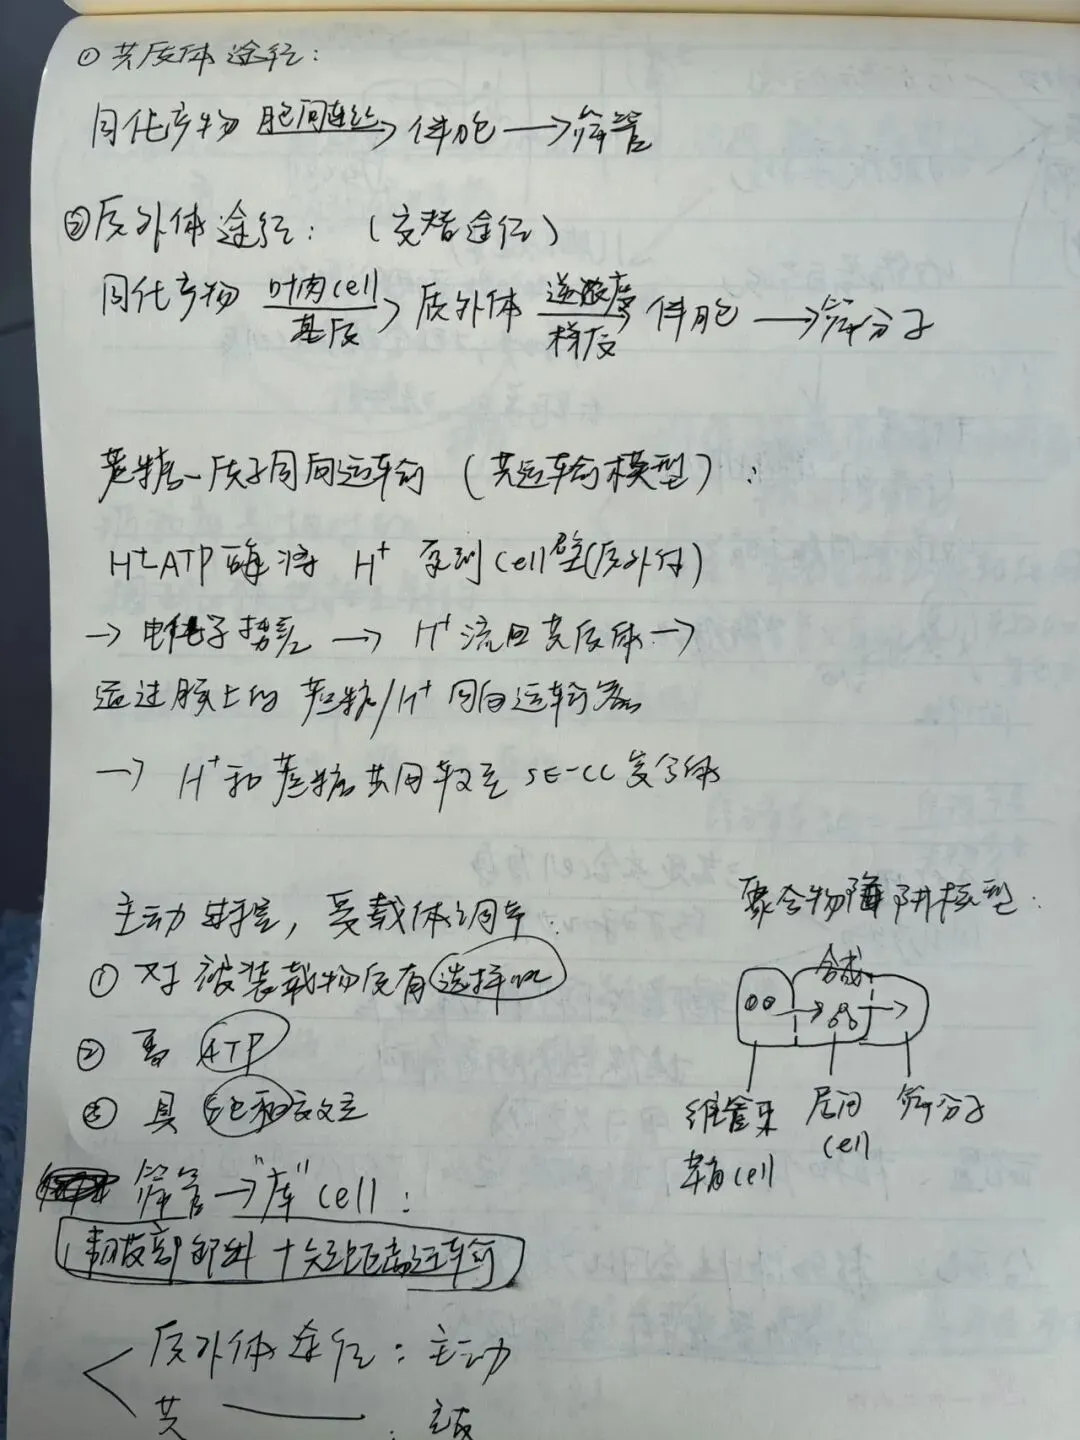 ① 共质体途径：
同化产物 胞间连丝→ 伴胞 → 筛管
② 质外体途径：（交替途径）
同化产物 叶肉cell 基质→ 质外体 逆浓度 梯度→ 伴胞 → 筛分子
蔗糖-质子同向运输（共运输模型）：
H⁺-ATP酶将 H⁺ 泵到cell壁(质外体)
→ 电化学势差 → H⁺流回共质体 →
通过膜上的 蔗糖/H⁺ 同向运输器
→ H⁺和蔗糖共同转运 SE-CC复合体
主动过程，受载体调节：
① 对被装载物质有选择性
② 需 ATP
③ 具饱和效应
聚合物陷阱模型：
合成
维管束
鞘cell
居间
cell
筛分子
筛管 → "库"cell：
韧皮部卸出 + 短距离运输
质外体途径：主动
共 —— ：